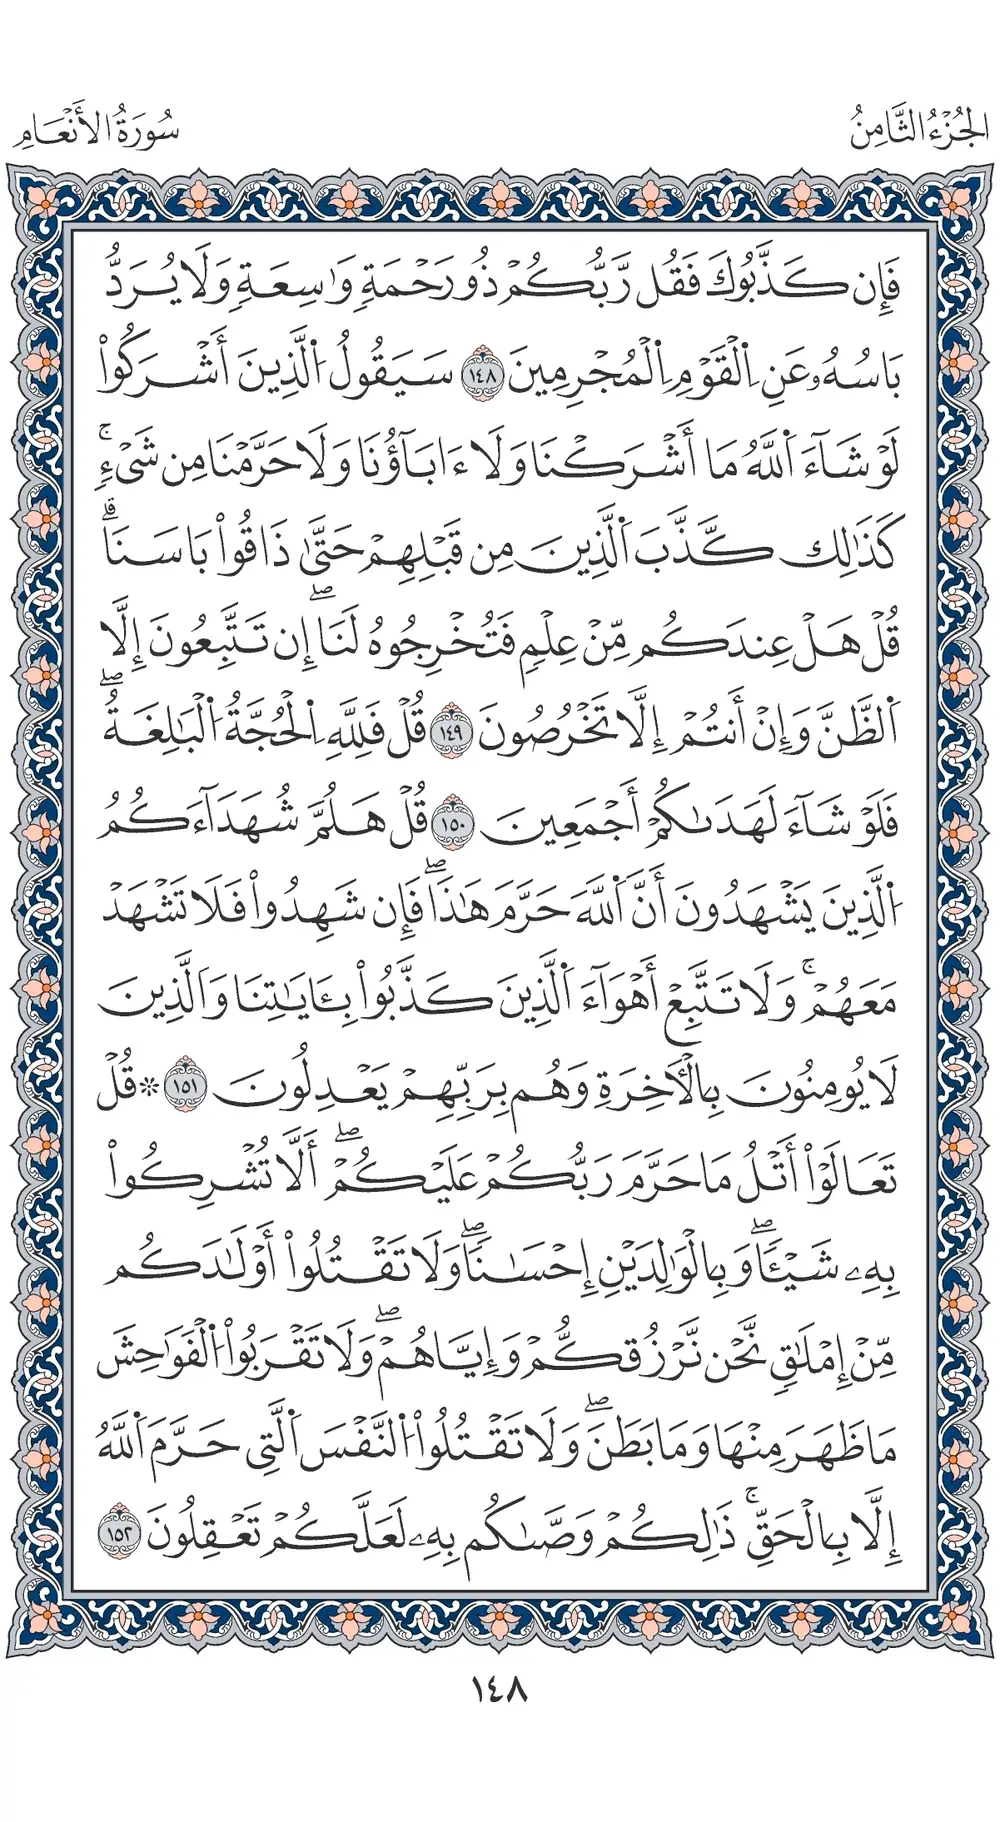 الجُزْءُ الثَّامِنُ
سُورَةُ الأَنْعَامِ
فَإِن كَذَّبُوكَ فَقُل رَّبُّكُمْ ذُو رَحْمَةٍ وَٰسِعَةٍ وَلَا يُرَدُّ
بَاسُهُۥ عَنِ اِ۬لْقَوْمِ اِ۬لْمُجْرِمِينَ ١٤٨ سَيَقُولُ اُ۬لَّذِينَ أَشْرَكُواْ
لَوْ شَآءَ اَ۬للَّهُ مَا أَشْرَكْنَا وَلَا ءَابَآؤُنَا وَلَا حَرَّمْنَا مِن شَيْءٖۚ
كَذَٰلِك كَّذَّبَ اَ۬لَّذِينَ مِن قَبْلِهِمْ حَتَّىٰ ذَاقُواْ بَاسَنَاۗ
قُلْ هَلْ عِندَكُم مِّنْ عِلْمٖ فَتُخْرِجُوهُ لَنَاۖ إِن تَتَّبِعُونَ إِلَّا
اَ۬لظَّنَّ وَإِنْ أَنتُمْ إِلَّا تَخْرُصُونَ ١٤٩ قُلْ فَلِلَّهِ اِ۬لْحُجَّةُ اُ۬لْبَٰلِغَةُۖ
فَلَوْ شَآءَ لَهَدَىٰكُمْ أَجْمَعِينَ ١٥٠ قُلْ هَلُمَّ شُهَدَآءَكُمُ
اُ۬لَّذِينَ يَشْهَدُونَ أَنَّ اَ۬للَّهَ حَرَّمَ هَٰذَاۖ فَإِن شَهِدُواْ فَلَا تَشْهَدْ
مَعَهُمْۚ وَلَا تَتَّبِعْ أَهْوَآءَ اَ۬لَّذِينَ كَذَّبُواْ بِـَٔايَٰتِنَا وَاَلَّذِينَ
لَا يُومِنُونَ بِالْأٓخِرَةِ وَهُم بِرَبِّهِمْ يَعْدِلُونَ ١٥١ * قُلْ
تَعَالَوْاْ أَتْلُ مَا حَرَّمَ رَبُّكُمْ عَلَيْكُمْۖ أَلَّا تُشْرِكُواْ
بِهِۦ شَيْـٔٗاۖ وَبِالْوَٰلِدَيْنِ إِحْسَٰنٗاۖ وَلَا تَقْتُلُواْ أَوْلَٰدَكُم
مِّنْ إِمْلَٰقٖ نَّحْن نَّرْزُقكُّمْ وَإِيَّاهُمْۖ وَلَا تَقْرَبُواْ اُ۬لْفَوَٰحِشَ
مَا ظَهَرَ مِنْهَا وَمَا بَطَنَۖ وَلَا تَقْتُلُواْ اُ۬لنَّفْسَ اَ۬لَّتِي حَرَّمَ اَ۬للَّهُ
إِلَّا بِالْحَقِّۚ ذَٰلِكُمْ وَصَّىٰكُم بِهِۦ لَعَلَّكُمْ تَعْقِلُونَ ١٥٢
١٤٨